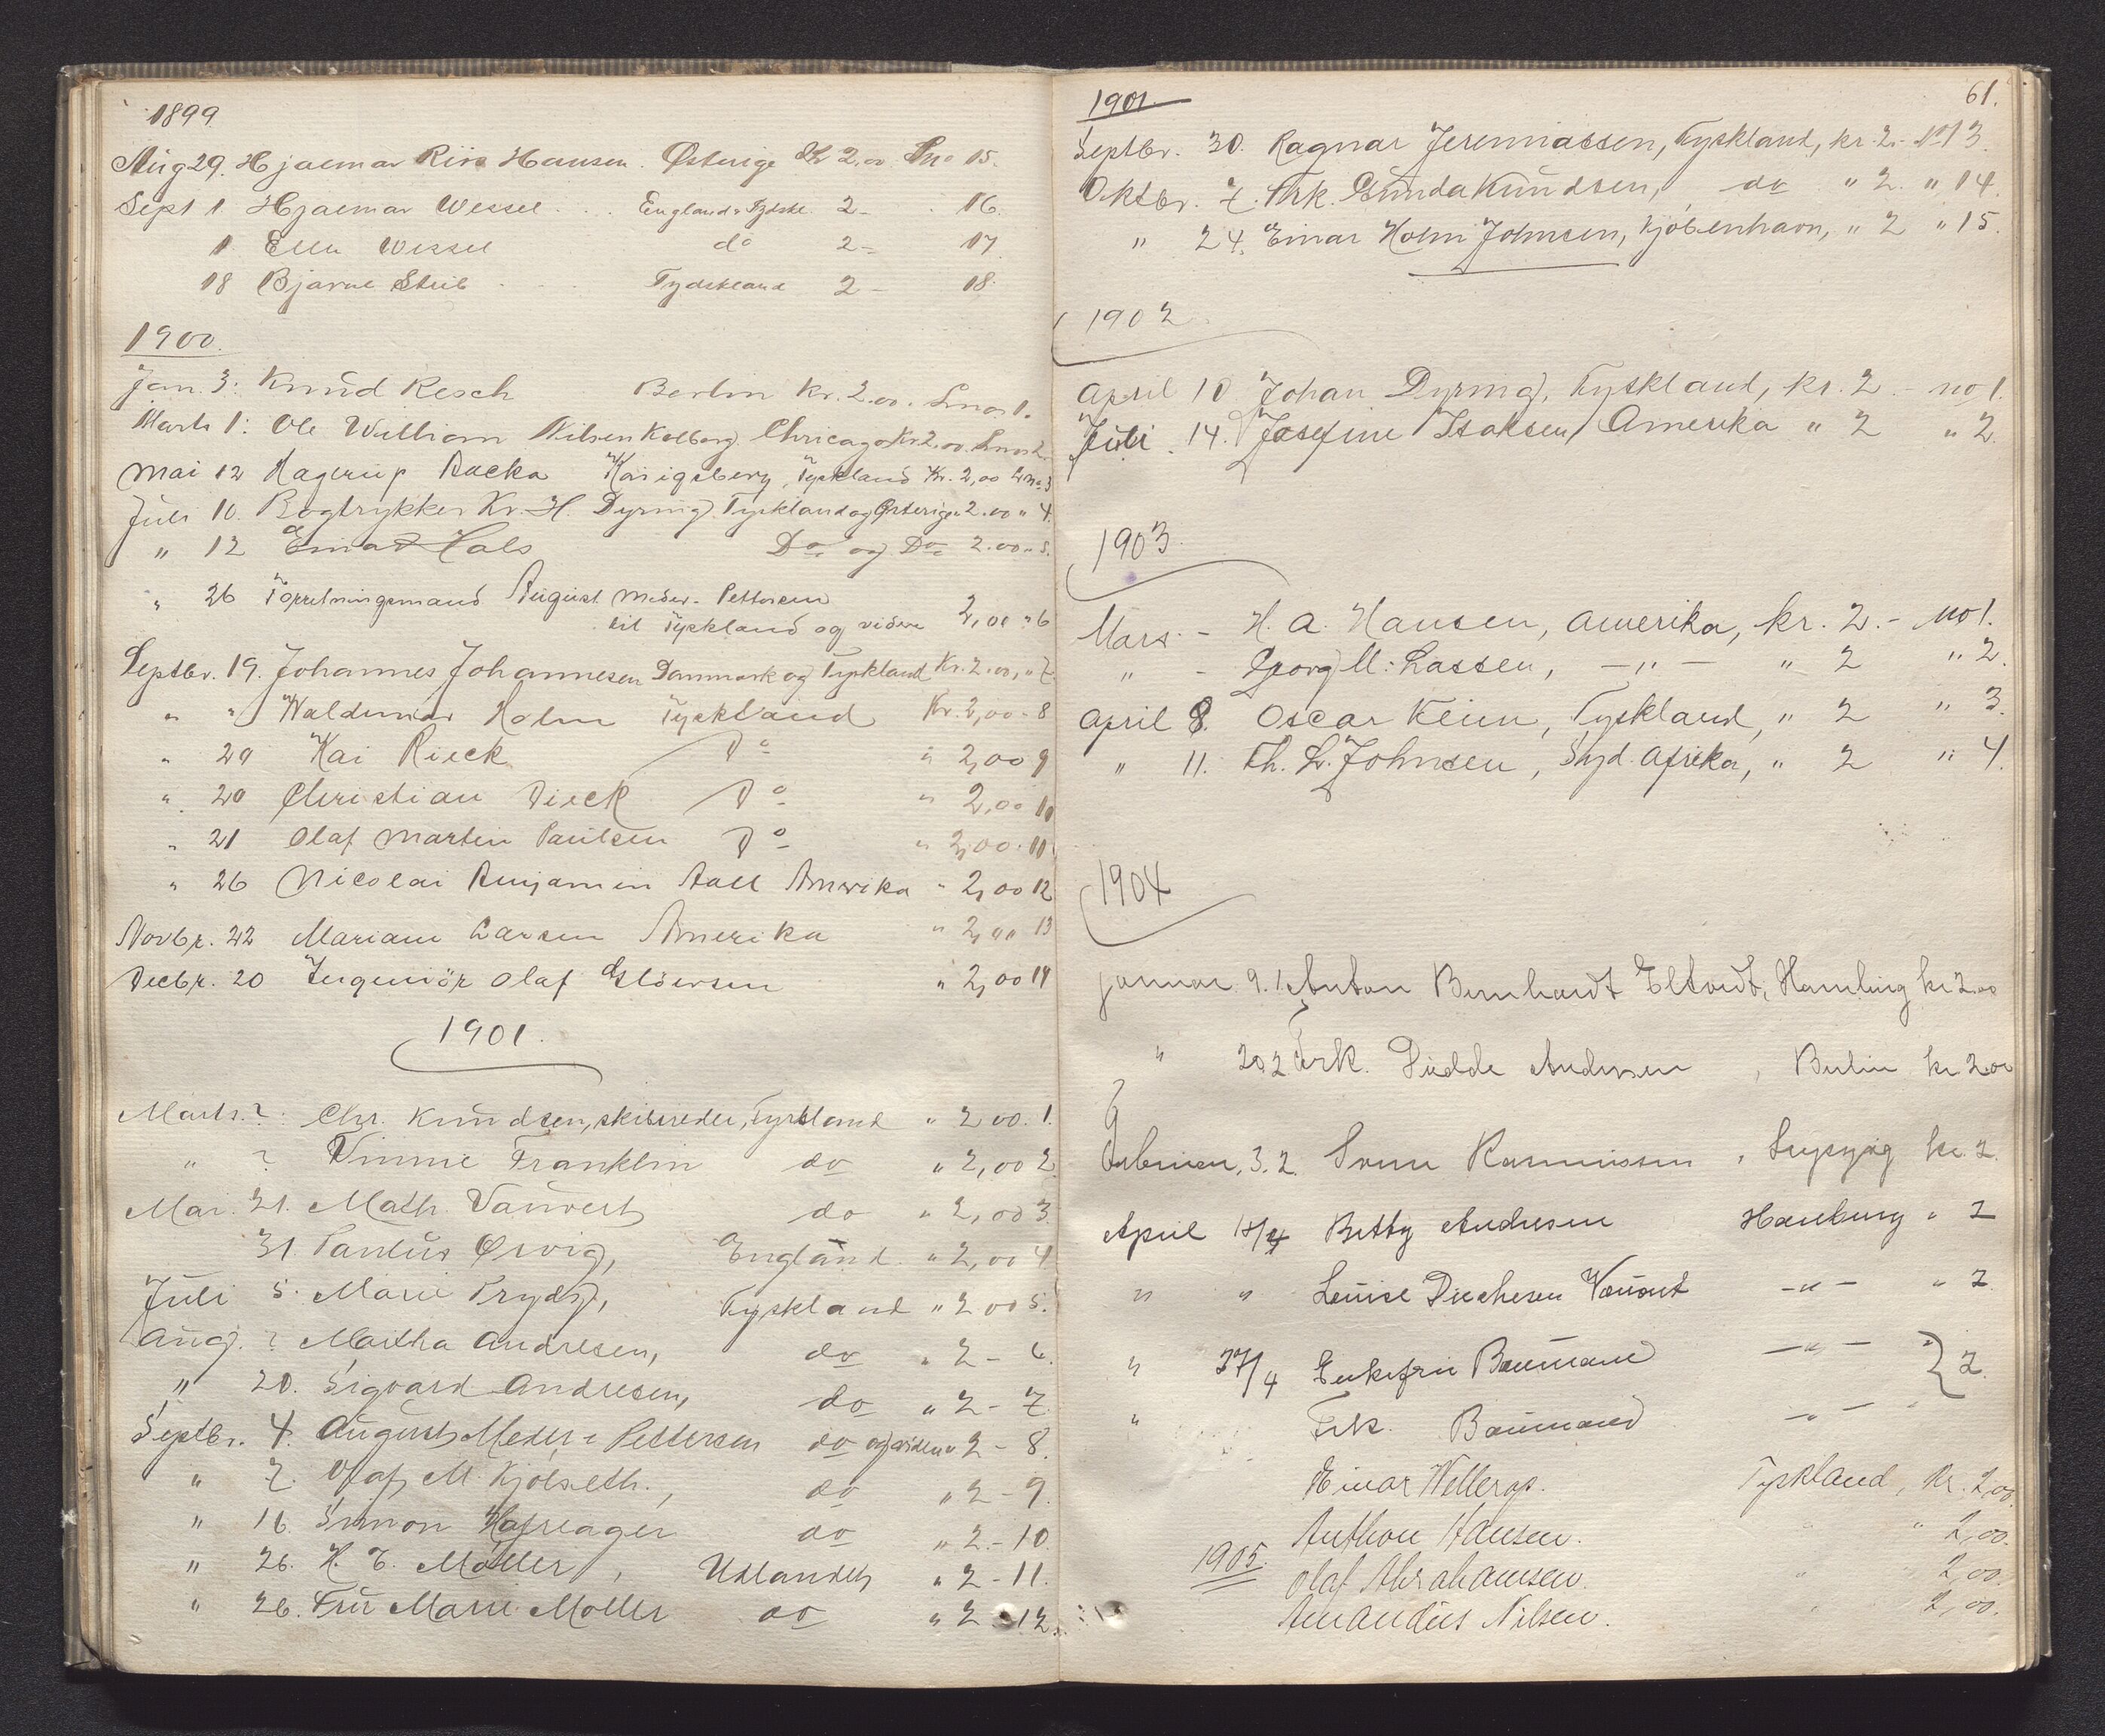 1899
Aug 29. Hjalmar Riis Hansen. Østerige Kr 2,00 Lno 15.
Sept 1. Hjalmar Wessel . . . England & Tydskl. 2- . 16.
1. Ella Wessel do 2- 17.
18 Bjarne Steib . . . Tydskland 2- 18.
1900.
Jan. 3. Knud Resch Berlin Kr. 2.00. Lno 1.
Marts 1. Ole William Nilsen Kolberg. Chricago Kr 2.00. Lno 2.
Mai 12 Hagerup Königsberg, Tyskland Kr. 2,00 Lno 3
Juli 10. Bogtrykker Kr. H. Dyring. Tyskland og Østerige 2.00 " 4.
" 12 Einar Hals Do og Do 2.00 " 5.
" 26 Forretningsmand August Meder-Pettersen
til Tyskland og videre 2,00 " 6
Septbr. 19. Johannes Johannesen Danmark og Tyskland Kr. 2.00, " 7
" " Waldemar Holm Tyskland Kr. 2,00 - 8
" 20 Kai Rieck Do " 2,00 9
" 20 Christian Rieck Do " 2,00 10
" 21 Olaf Martin Paulsen Do " 2,00. 11
" 26 Nicolai Benjamin Aall Amerika " 2,00 12
Novbr. 22 Mariane Larsen Amerika " 2,00 13
Decbr. 20 Ingeniör Olaf " 2,00 14
1901.
Marts. ? Chr. Knudsen, skibsreder, Tyskland " 2 00. 1.
" ? Vinnie Franklin do " 2,00 2
Mai. 21. Math. Vauvert do " 2,00 3.
31. Paulus Ørvig, England. " 2,00 4
Juli 5. Marie Prydz, Tyskland " 2 00 5.
Aug. ? Martha Andresen, do " 2 - 6.
" 20. Sigvard Andresen, do " 2 - 7
Septbr. 4. August Meder-Pettersen do og videre " 2 - 8.
" 7. Olaf M. Kjölseth., do " 2 - 9.
" 16. Simon Hafsager do " 2. - 10.
" 26. H. E. Möller, Udlandet " 2 - 11.
" 26. Fru Marie Möller do " 2 - 12.
1901. 61.
Septbr. 30. Ragnar Jeremiassen, Tyskland, kr. 2.- No 13.
Oktbr. 7. Frk. Gunda Knudsen, do " 2. " 14.
" 24. Einar Holm Johnsen, Kjöbenhavn, " 2 " 15.
1902.
April 10 Johan Dyring, Tyskland, kr. 2 - no 1.
Juli 14. Josefine Isaksen, Amerika " 2 " 2.
1903.
Mars - H. A. Hansen, Amerika, kr. 2.- no 1.
" - Georg M. Lassen, -"- " 2 " 2.
April 8. Oscar Keim, Tyskland, " 2 " 3.
" 11. Th. L. Johnsen, Syd. Afrika, " 2 " 4.
1904
januar 9. 1 Anton Bernhardt Eltvedt, Hamburg kr 2.00
" 20 2 Frk. Didde Andersen, Berlin kr 2.00
Februar, 3. 2. Rasmussen, Leipzig kr. 2.
April 18/4 Betty Andresen Hamburg " 2
" " Louise Vauvert -"- " 2
" 27/4 Enkefru Baumann -"- } 2.
" Frk. Baumann -"-
Einar Wellerop. Tyskland, kr. 2,00.
Anthon Hansen. " " 2,00.
1905. Olaf Abrahamsen. " 2,00.
Amandus Nilsen. " 2,00.